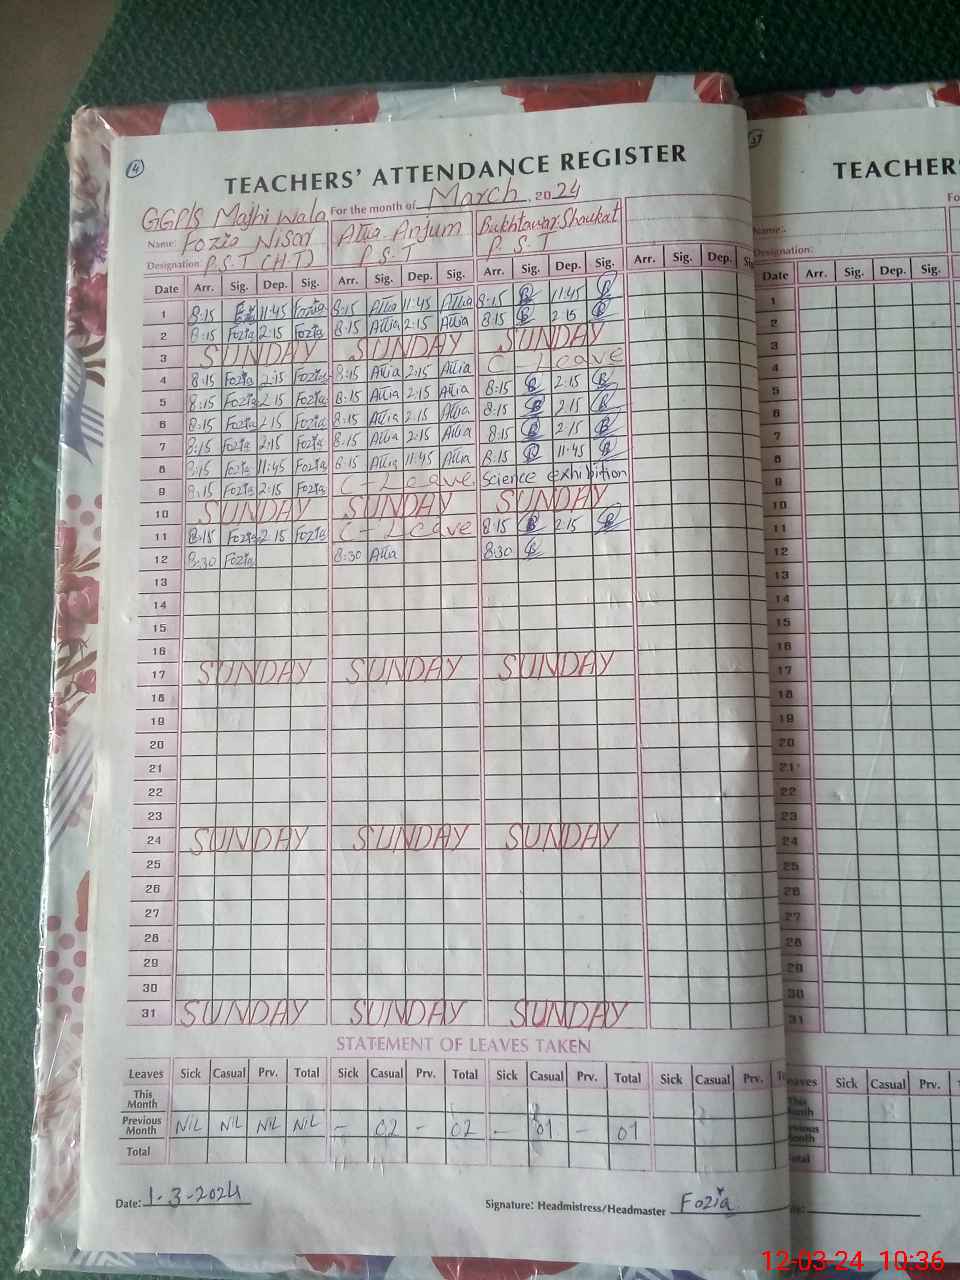 4
TEACHERS' ATTENDANCE REGISTER
GGP/S Majhi Wala For the month of March, 2024
Name: Fozia Nisar Attia Anjum Bakhtawar Shoukat
Designation: P.S.T (H.T) P.S.T P.S.T
Date Arr. Sig. Dep. Sig. Arr. Sig. Dep. Sig. Arr. Sig. Dep. Sig. Arr. Sig. Dep. Sig.
1 8:15 11:45 Fozia 8:15 Attia 11:45 Attia 8:15 11:45
2 8:15 Fozia 2:15 Fozia 8:15 Attia 2:15 Attia 8:15 2:15
3 SUNDAY SUNDAY SUNDAY
4 8:15 Fozia 2:15 Fozia 8:15 Attia 2:15 Attia C-Leave
5 8:15 Fozia 2:15 Fozia 8:15 Attia 2:15 Attia 8:15 2:15
6 8:15 Fozia 2:15 Fozia 8:15 Attia 2:15 Attia 8:15 2:15
7 8:15 Fozia 2:15 Fozia 8:15 Attia 2:15 Attia 8:15 2:15
8 8:15 Fozia 11:45 Fozia 8:15 Attia 11:45 Attia 8:15 11:45
9 8:15 Fozia 2:15 Fozia C-Leave Science exhibition
10 SUNDAY SUNDAY SUNDAY
11 8:15 Fozia 2:15 Fozia C-Leave 8:15 2:15
12 8:30 Fozia 8:30 Attia 8:30
13
14
15
16
17 SUNDAY SUNDAY SUNDAY
18
19
20
21
22
23
24 SUNDAY SUNDAY SUNDAY
25
26
27
28
29
30
31 SUNDAY SUNDAY SUNDAY
STATEMENT OF LEAVES TAKEN
Leaves Sick Casual Prv. Total Sick Casual Prv. Total Sick Casual Prv. Total Sick Casual Prv.
This Month
Previous Month NIL NIL NIL NIL - 02 - 02 - 01 - 01
Total
Date: 1-3-2024 Signature: Headmistress/Headmaster Fozia
TEACHERS'
Name:
Designation:
Date Arr. Sig. Dep. Sig.
1
2
3
4
5
6
7
8
9
10
11
12
13
14
15
16
17
18
19
20
21
22
23
24
25
26
27
28
29
30
31
Sick Casual Prv.
12-03-24 10:36